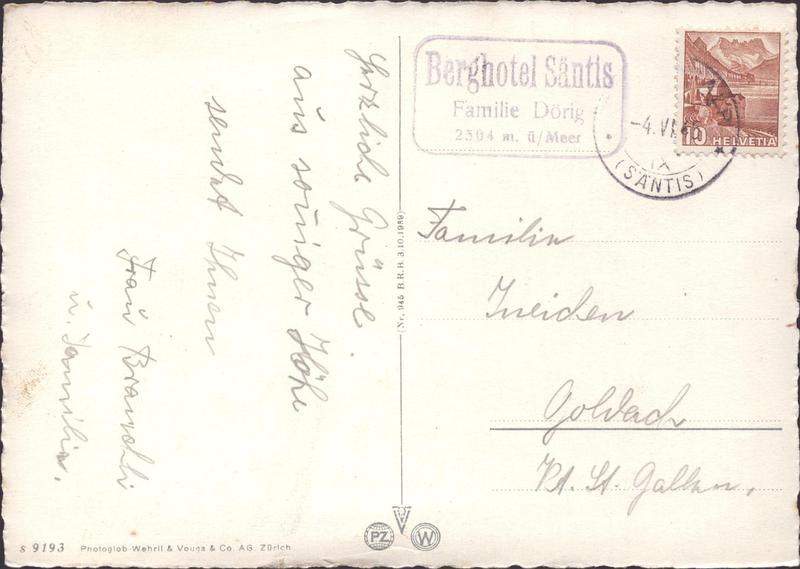 Herzliche Grüsse
aus soniger Höhe
sendet Ihnen
Frau
u. Familie.
Berghotel Säntis
Familie Dörig
2504 m. ü/Meer
-4. VI. 
(SÄNTIS)
10 HELVETIA
(Nr. 945 B.R.B. 3.10.1939)
Familie
Goldach
Kt. St. Gallen,
S 9193 Photoglob-Wehrli & Vouga & Co. AG. Zürich
PZ W